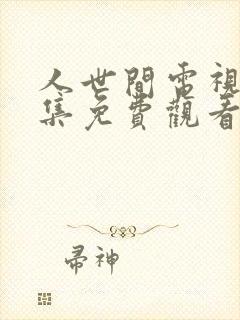 人世間電視
集免費觀看
帚神